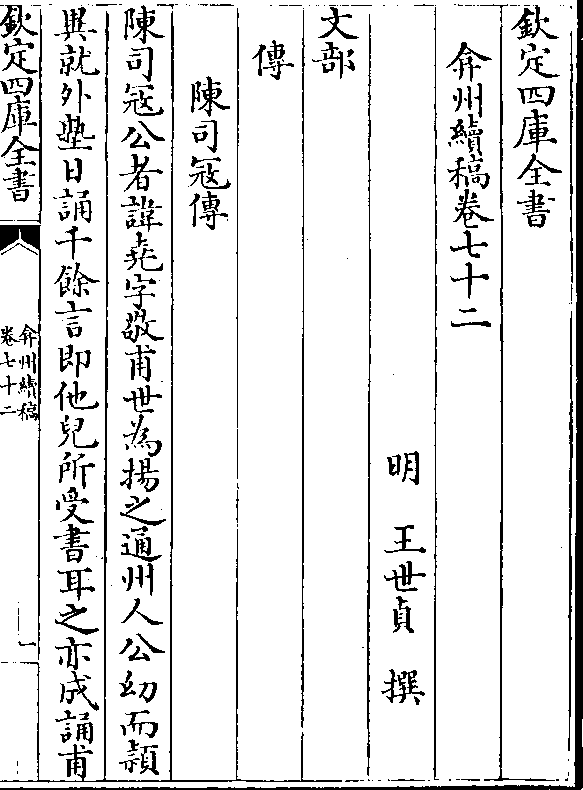 欽定四庫全書
弇州續稿卷七十二
明 王世貞 撰
文部
傳
陳司冦傳
陳司冦公者諱堯字敬甫世為揚之通州人公幼而穎
異就外塾日誦千餘言即他兒所受書耳之亦成誦甫
欽定四庫全書
弇州續稿
卷七十二
一